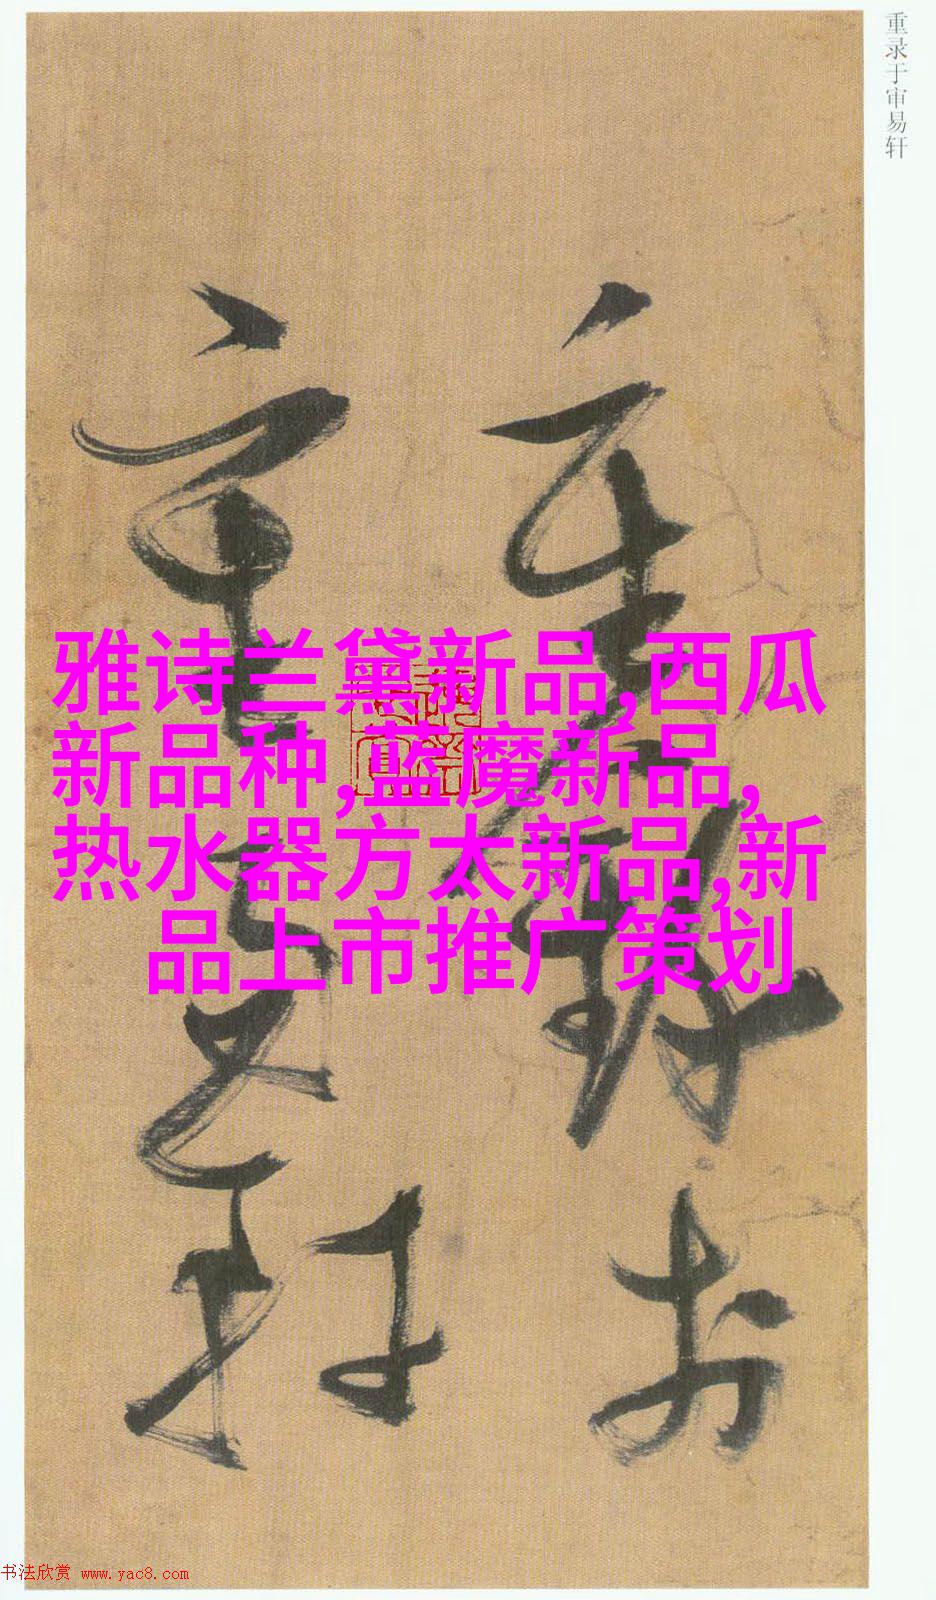 重录于审易轩
雅诗兰黛新品,西瓜
新品种,蓝魔新品,
热水器方太新品,新
品上市推广策划
重录于
审易轩
书法欣赏 www.yac8.com